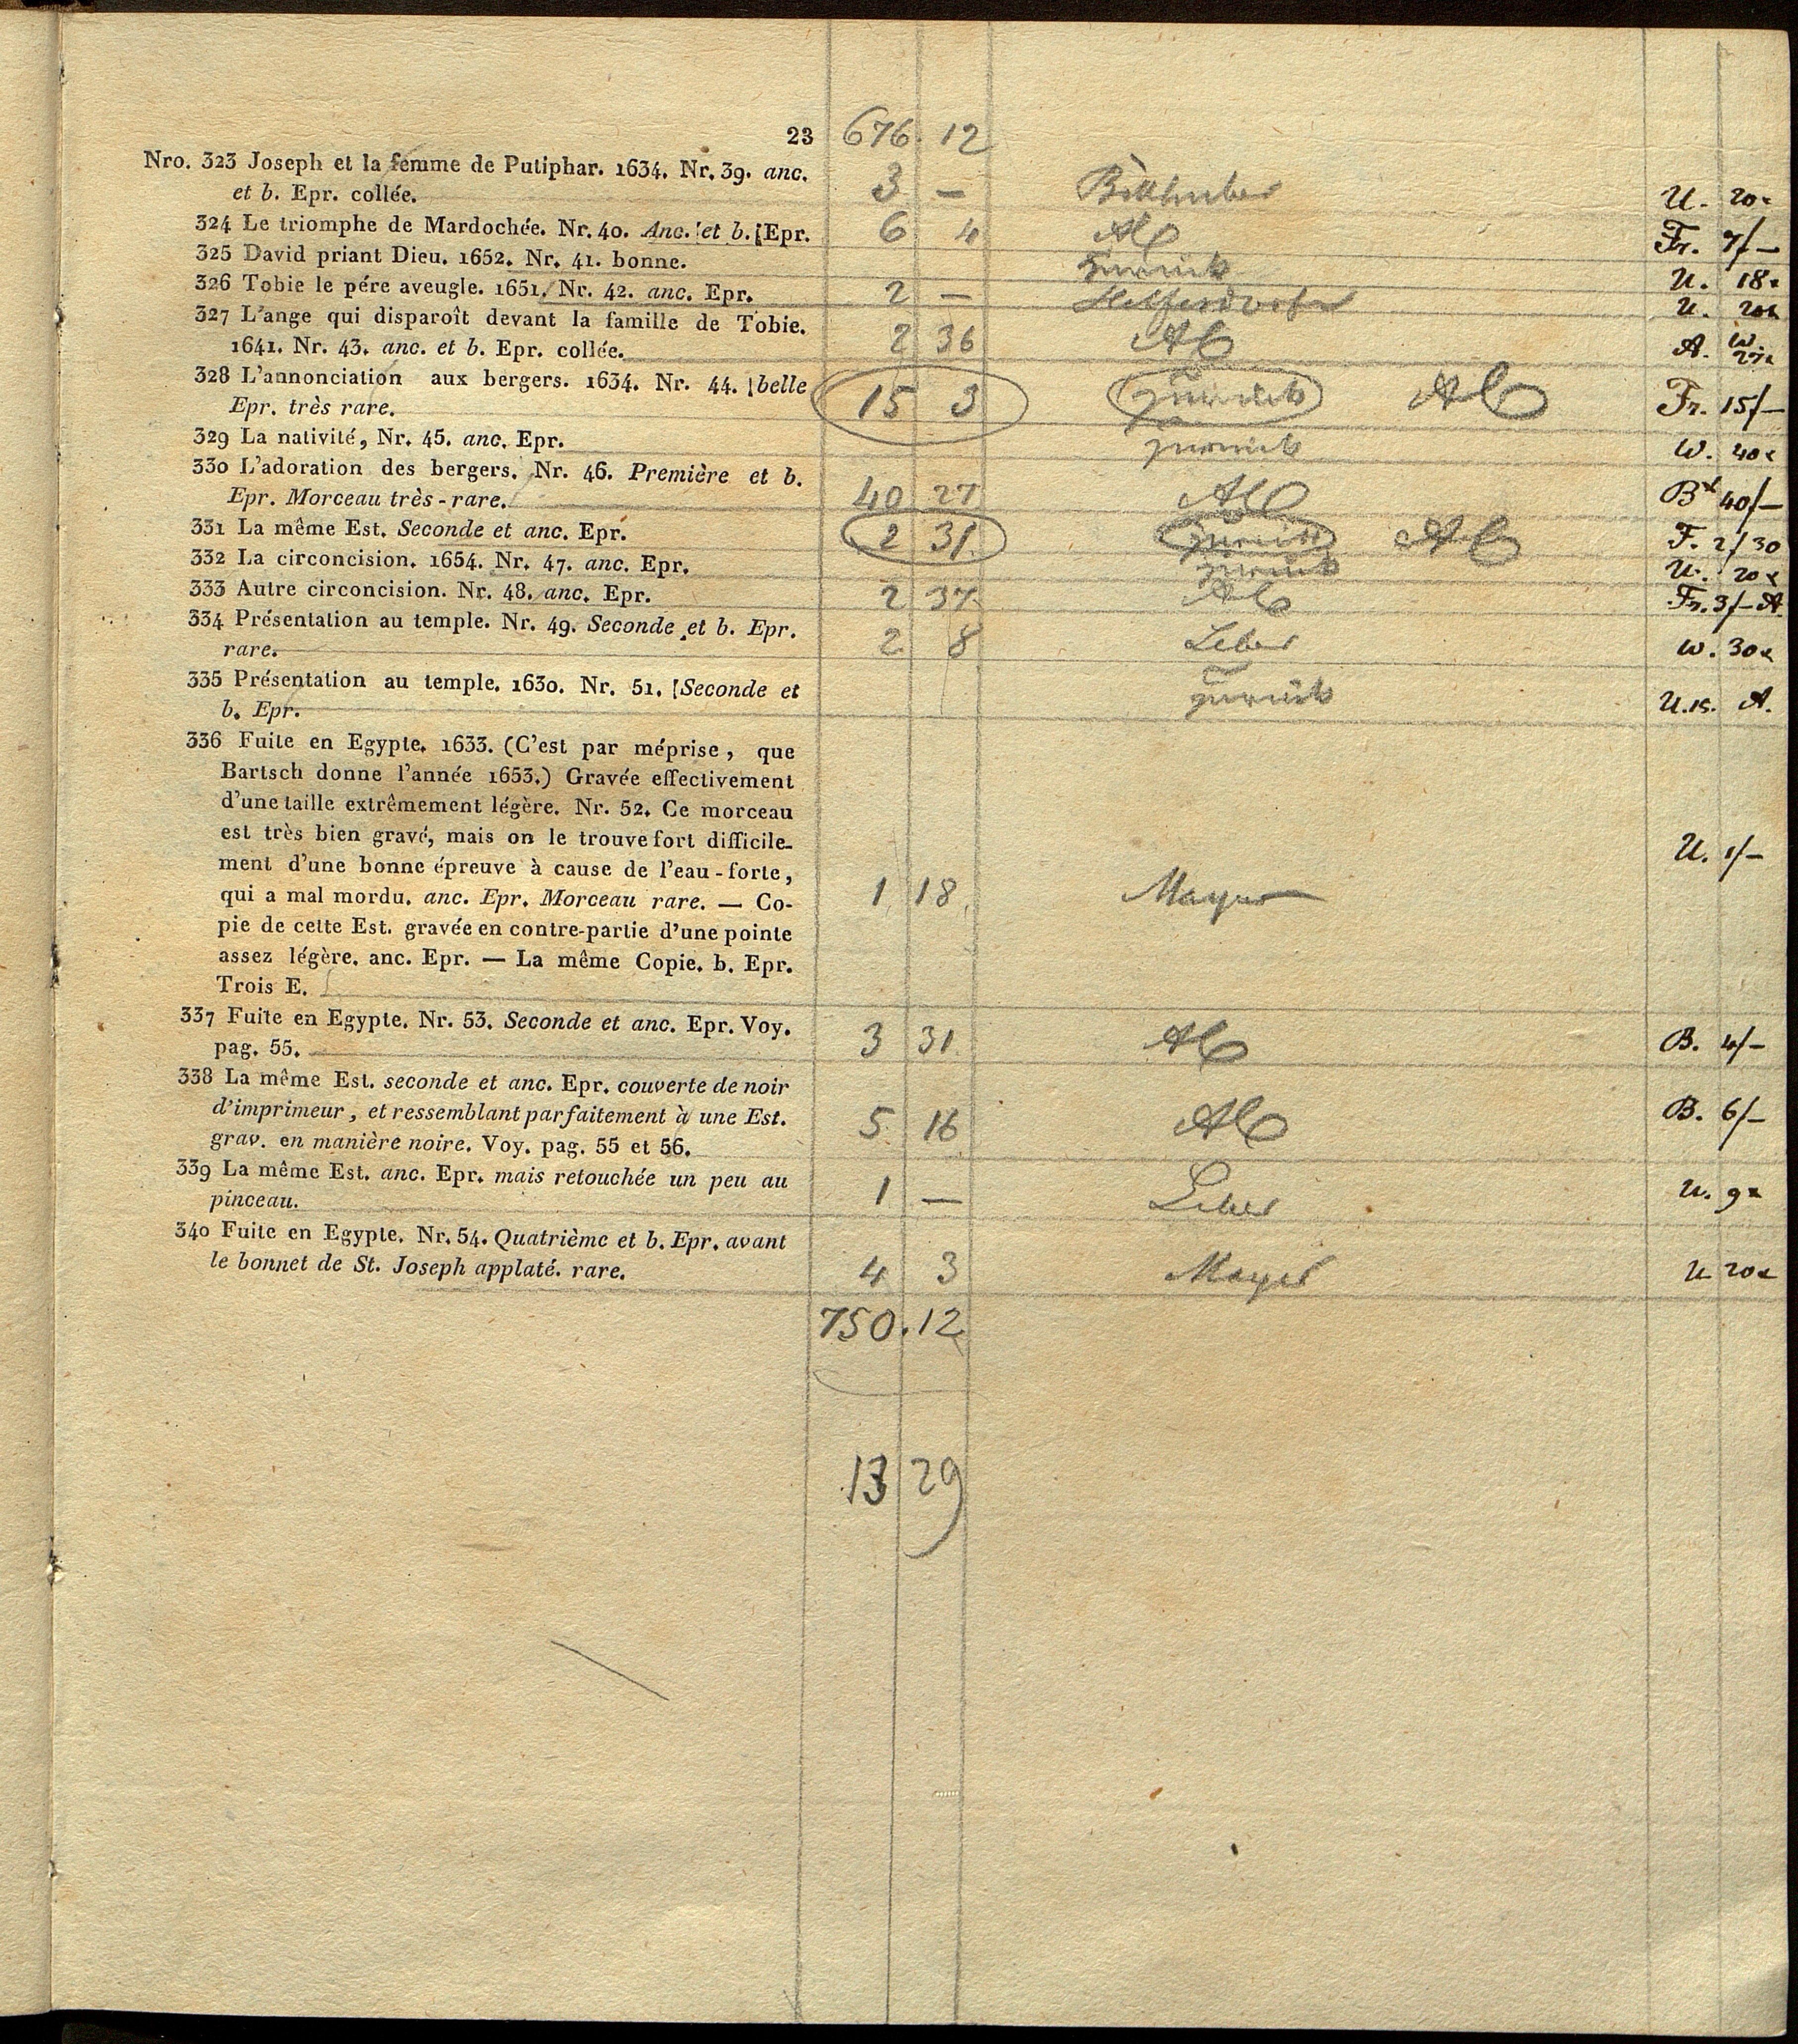 23 676. 12
Nro. 323 Joseph et la femme de Putiphar. 1634. Nr. 39. anc.
et b. Epr. collée. 3 — U. 20x
324 Le triomphe de Mardochée. Nr. 40. Anc. et b. Epr. 6 4 Fr. 7/—
325 David priant Dieu. 1652. Nr. 41. bonne. zurück U. 18x
326 Tobie le pére aveugle. 1651. Nr. 42. anc. Epr. 2 — U. 20x
327 L'ange qui disparoît devant la famille de Tobie.
1641. Nr. 43. anc. et b. Epr. collée. 2 36 A. W.
328 L'annonciation aux bergers. 1634. Nr. 44. belle
Epr. très rare. 15 3 zurück Fr. 15/—
329 La nativité, Nr. 45. anc. Epr. zurück W. 40x
330 L'adoration des bergers. Nr. 46. Première et b.
Epr. Morceau très-rare. 40 27 B 40/—
331 La même Est. Seconde et anc. Epr. 2 31 zurück F. 2/30
332 La circoncision. 1654. Nr. 47. anc. Epr. zurück U. 20x
333 Autre circoncision. Nr. 48. anc. Epr. 2 37 Fr. 3/— A.
334 Présentation au temple. Nr. 49. Seconde et b. Epr.
rare. 2 8 Leber W. 30x
335 Présentation au temple. 1630. Nr. 51. Seconde et
b. Epr. zurück U. 15. A.
336 Fuite en Egypte. 1633. (C'est par méprise, que
Bartsch donne l'année 1653.) Gravée effectivement
d'une taille extrêmement légère. Nr. 52. Ce morceau
est très bien gravé, mais on le trouve fort difficile-
ment d'une bonne épreuve à cause de l'eau-forte, U. 1/—
qui a mal mordu. anc. Epr. Morceau rare. — Co- 1 18 Mayer
pie de cette Est. gravée en contre-partie d'une pointe
assez légère. anc. Epr. — La même Copie. b. Epr.
Trois E.
337 Fuite en Egypte. Nr. 53. Seconde et anc. Epr. Voy.
pag. 55. 3 31 B. 4/—
338 La même Est. seconde et anc. Epr. couverte de noir
d'imprimeur, et ressemblant parfaitement à une Est. 5 16 B. 6/—
grav. en manière noire. Voy. pag. 55 et 56.
339 La même Est. anc. Epr. mais retouchée un peu au
pinceau. 1 — Leber U. 9x
340 Fuite en Egypte. Nr. 54. Quatrième et b. Epr. avant
le bonnet de St. Joseph applaté. rare. 4 3 Mayer U 20x
750. 12
13 29